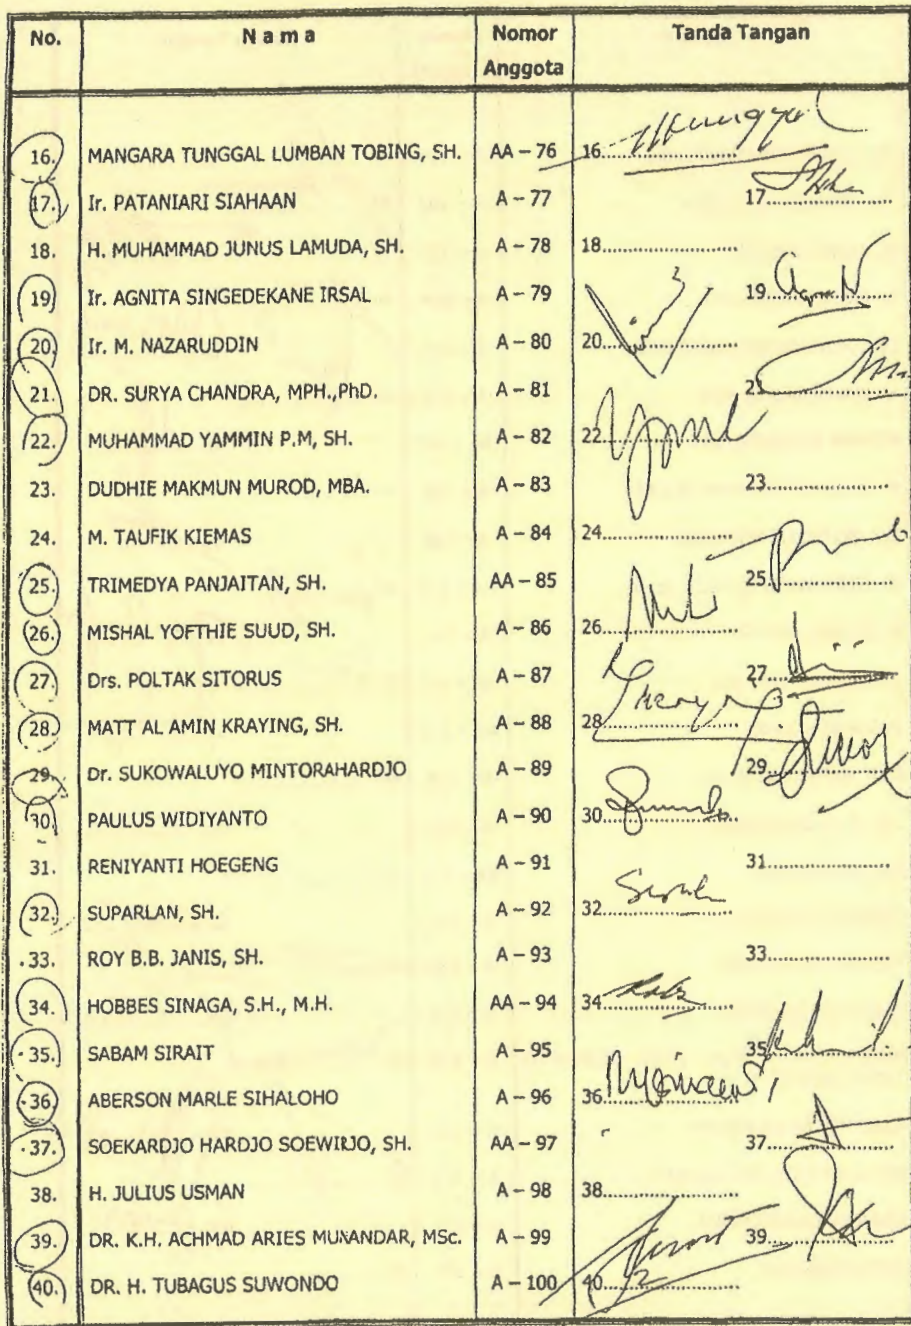 No. N a m a Nomor Anggota Tanda Tangan
16. MANGARA TUNGGAL LUMBAN TOBING, SH. AA – 76 16
17. Ir. PATANIARI SIAHAAN A – 77 17
18. H. MUHAMMAD JUNUS LAMUDA, SH. A – 78 18
19 Ir. AGNITA SINGEDEKANE IRSAL A – 79 19
20. Ir. M. NAZARUDDIN A – 80 20
21. DR. SURYA CHANDRA, MPH.,PhD. A – 81 21
22. MUHAMMAD YAMMIN P.M, SH. A – 82 22
23. DUDHIE MAKMUN MUROD, MBA. A – 83 23
24. M. TAUFIK KIEMAS A – 84 24
25. TRIMEDYA PANJAITAN, SH. AA – 85 25
26. MISHAL YOFTHIE SUUD, SH. A – 86 26
27. Drs. POLTAK SITORUS A – 87 27
28. MATT AL AMIN KRAYING, SH. A – 88 28
29. Dr. SUKOWALUYO MINTORAHARDJO A – 89 29
30. PAULUS WIDIYANTO A – 90 30
31. RENIYANTI HOEGENG A – 91 31
32. SUPARLAN, SH. A – 92 32
33. ROY B.B. JANIS, SH. A – 93 33
34. HOBBES SINAGA, S.H., M.H. AA – 94 34
35. SABAM SIRAIT A – 95 35
36. ABERSON MARLE SIHALOHO A – 96 36
37. SOEKARDJO HARDJO SOEWIRJO, SH. AA – 97 37
38. H. JULIUS USMAN A – 98 38
39. DR. K.H. ACHMAD ARIES MUNANDAR, MSc. A – 99 39
40. DR. H. TUBAGUS SUWONDO A – 100 40